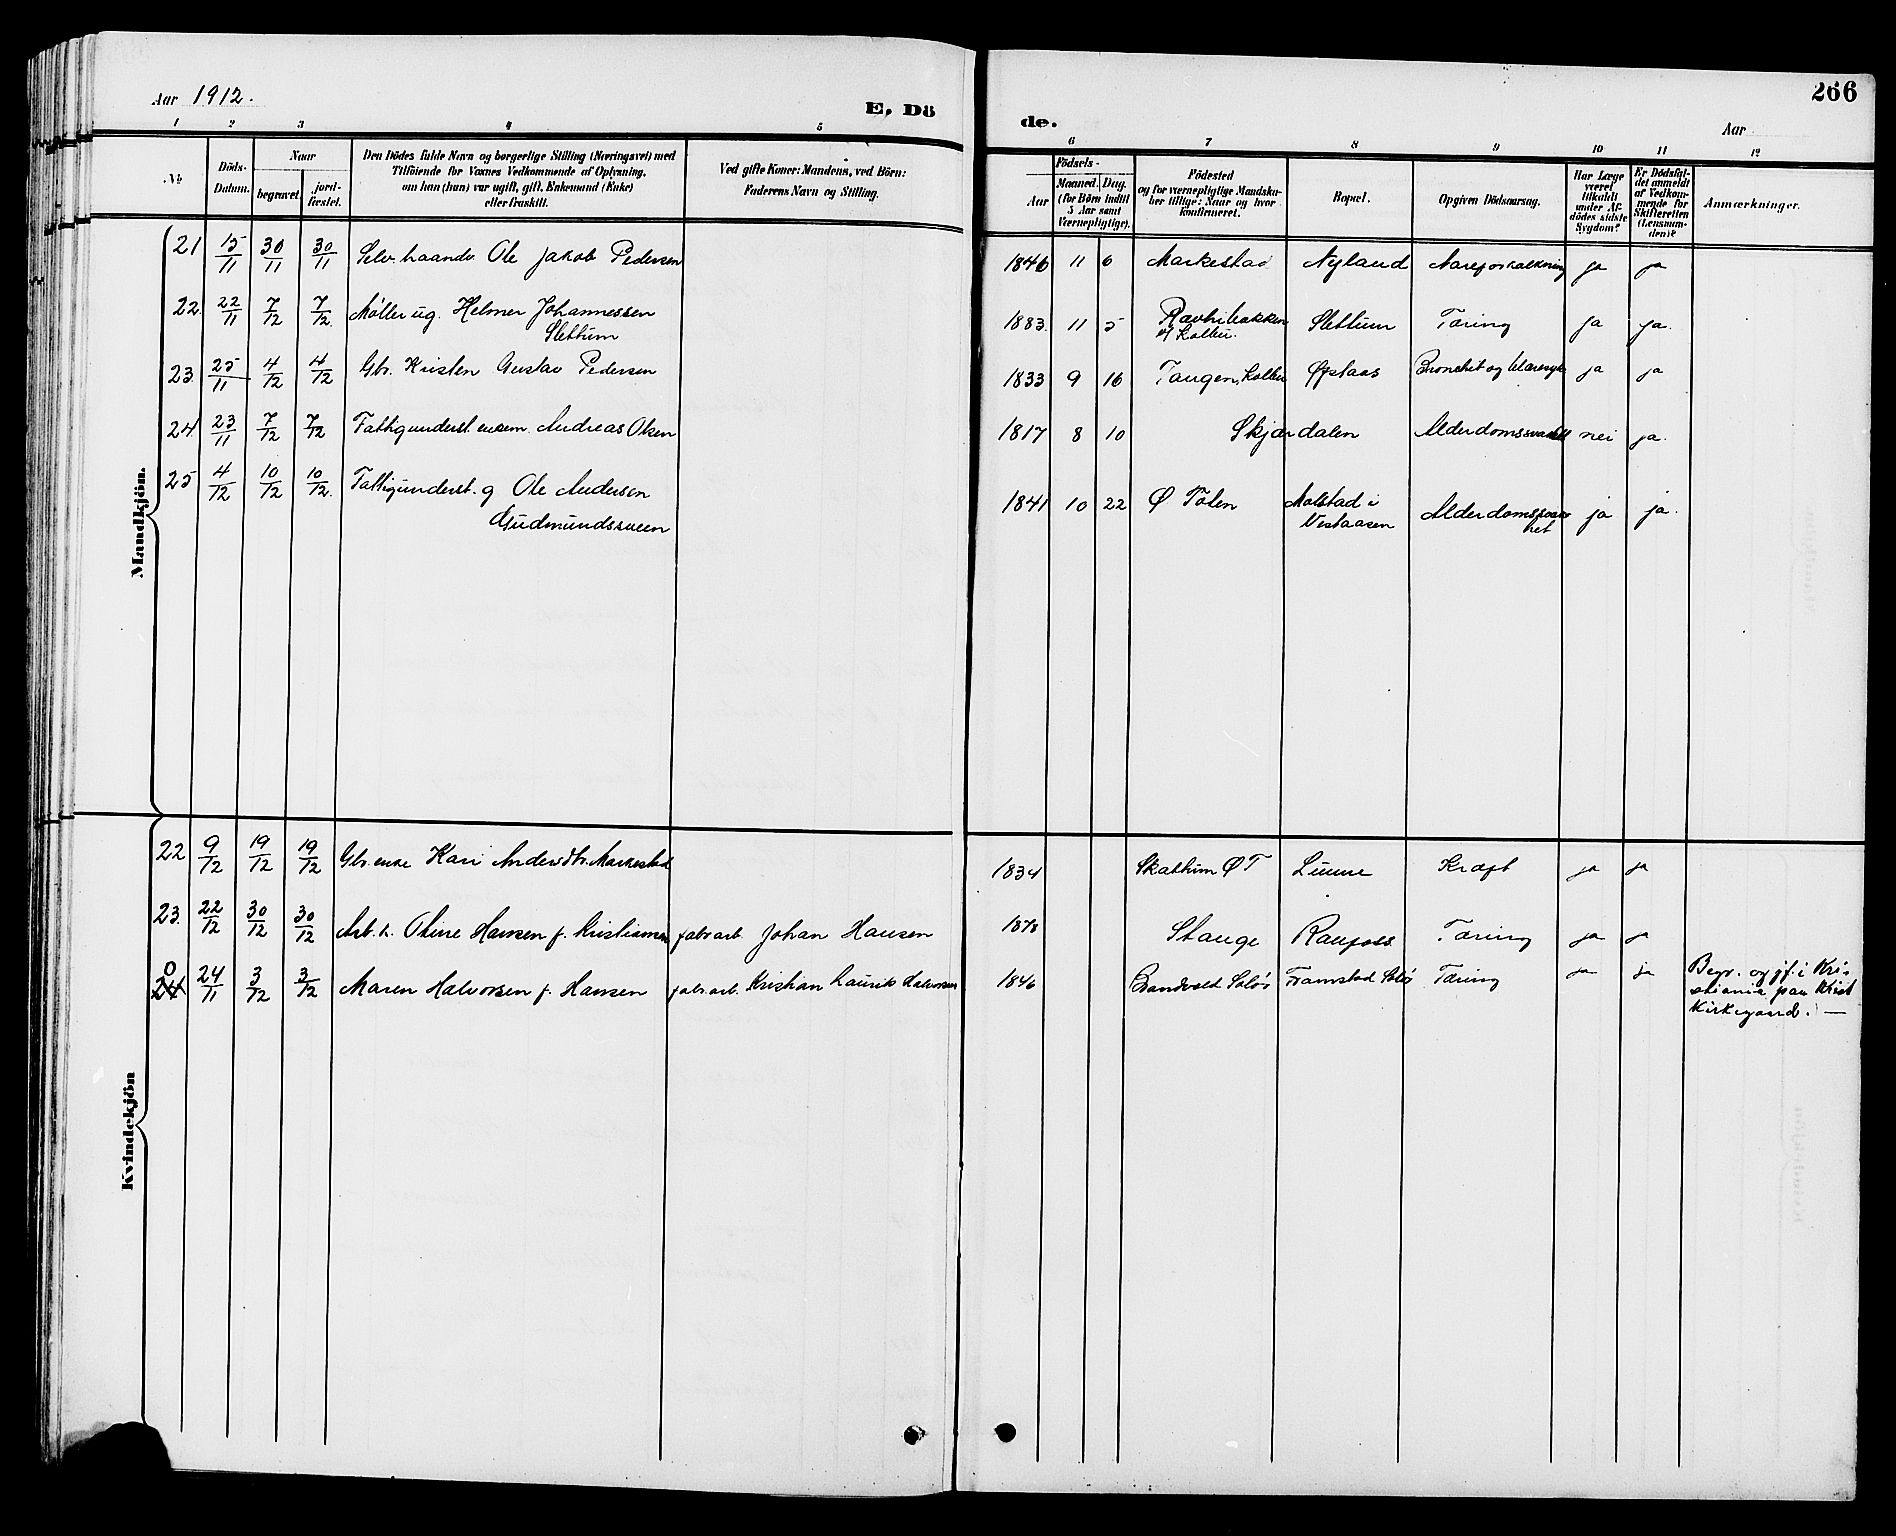 266
Aar 1912.
E. Dö
de.
Aar
1 2 3 4 5 6 7 8 9 10 11 12
No
Döds-
Datum.
Naar
begravet.
jord-
fæstet.
Den Dödes fulde Navn og borgerlige Stilling (Næringsvei) med
Tilföiende for Voxnes Vedkommende af Oplysning,
om han (hun) var ugift, gift, Enkemand (Enke)
eller fraskilt.
Ved gifte Koner: Mandens, ved Börn:
Faderens Navn og Stilling.
Födsels-
Aar
Maaned. Dag.
(for Börn indtil
5 Aar samt
Værnepligtige).
Födested
og for værnepligtige Mandska-
ber tillige: Naar og hvor
konfirmeret.
Bopæl.
Opgiven Dödsaarsag.
Har Læge
været
tilkaldt
under Af-
dödes sidste
Sygdom?
Er Dödsfal-
det anmeldt
af Vedkom-
mende for
Skifteretten
(Lensman-
den)?
Anmærkninger.
Mandkjön.
21 15/11 30/11 30/11 Selv. haandv. Ole Jakob Pedersen 1846 11 6 Markestad Nyland Aareforkalkning ja ja
22. 22/11 7/12 7/12. Møller ug. Helmer Johannessen
Slettum
1883. 11 5 v/ Kolbu. Slettum Tæring ja ja.
23. 25/11 4/12 4/12 Gbr. Kristen Gustav Pedersen 1833 9 16 Tangen, Kolbu Øfstaas Bronchit og ja ja
24. 23/11 7/12 7/12 Fattigunderst. enkem. Andreas Olsen 1817 8 10 Skjærdalen Alderdomssvakh nei ja.
25 4/12 10/12 10/12. Fattigunderst. g Ole Andersen
Gudmundssveen
1841 10 22 Ø Toten Molstad i
Vestaasen
Alderdomssvak
het
ja ja.
Kvindekjön
22 9/12 19/12 19/12 Gbr. enke Kari Andersdtr. Markestad 1834 Skattum ØT Linne Kræft ja ja
23. 22/12 30/12 30/12 Arb. h. Oline Hansen f. Kristiansen fabr arb. Johan Hansen 1878 Stange Raufoss Tæring ja ja
0
24 24/11 3/12 3/12 Maren Halvorsen f. Hansen fabr. arb. Kristian Laurits Halvorsen 1846 Brandvold Solør Framstad Solør Tæring ja ja
Begr. og jf. i Kri-
stiania paa Krist
Kirkegaard. —